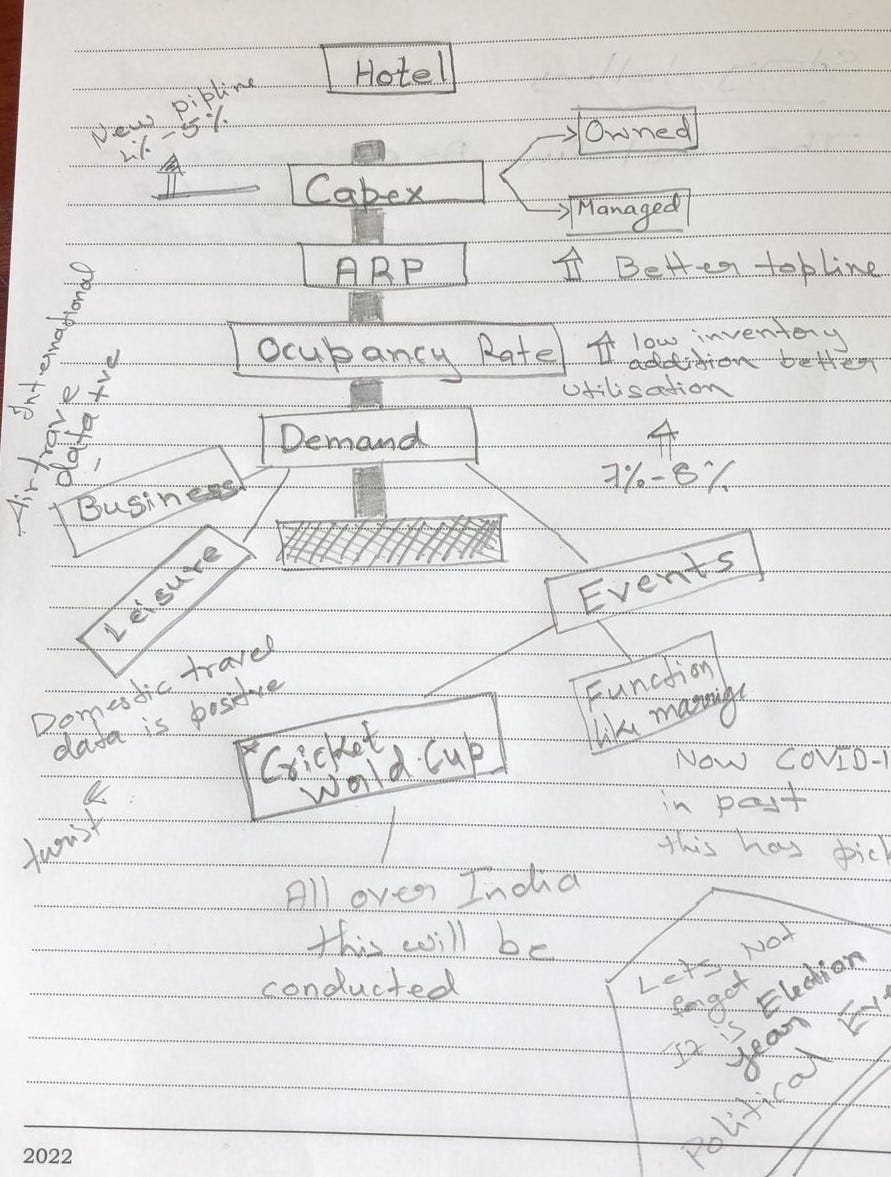 Hotel
New pipline
4% - 5%
Owned
Capex
Managed
ARP
Better topline
Ocupancy Rate
low inventory
addition better
utilisation
International
Air trave
data +ve
Demand
7% - 8%
Business
Leisure
Events
Domestic travel
data is positive
Function
like marrige
* Cricket
World Cup
Now COVID-1
in past
this has pick
turist
All over India
this will be
conducted
Lets Not
forgot
It is Election
year
Political Eve
2022